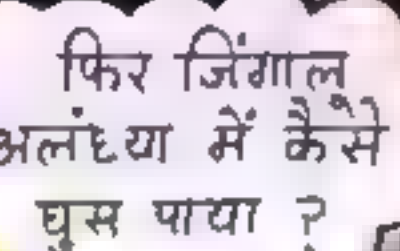 फिर जिंगालू
अलंध्या में कैसे
घुस पाया ?